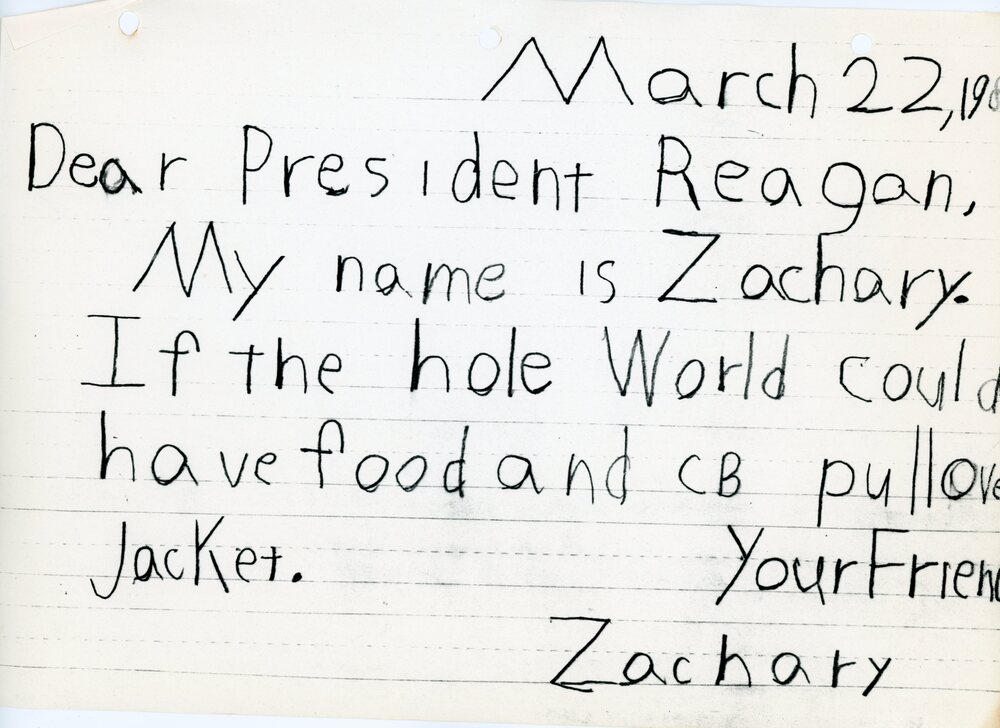 March 22, 19
Dear President Reagan,
My name is Zachary.
If the hole World could
have food and CB pullove
Jacket. Your Friend
Zachary